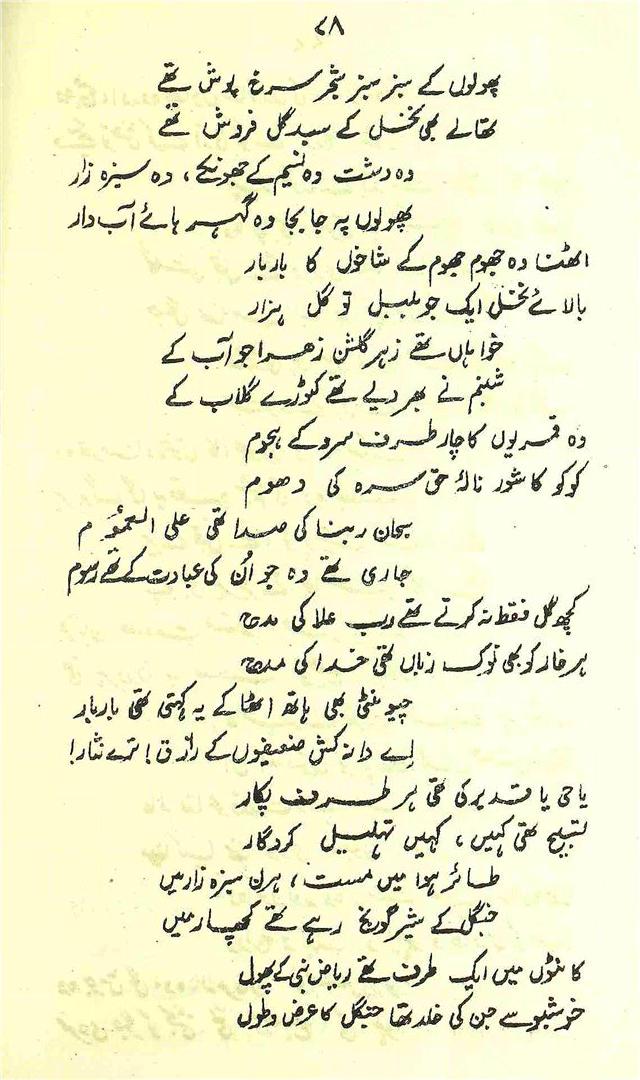 ۲۸
پھولوں کے سبز سبز شجر سرخ پوش تھے
تھالے بھی نخل کے سبدِ گل فروش تھے
وہ دشت وہ نسیم کے جھونکے، وہ سبزہ زار
پھولوں پہ جا بجا وہ گہر ہائے آب دار
اٹھنا وہ جھوم جھوم کے شاخوں کا بار بار
بالائے نخل ایک جو بلبل تو گل ہزار
خواہاں تھے زہر گلشن زہرا جو آب کے
شبنم نے بھر دیے تھے کٹورے گلاب کے
وہ قمریوں کا چار طرف سرو کے ہجوم
کوکو کا شور نالۂ حق سرہ کی دھوم
سبحان ربنا کی صدا تھی علی العموم
جاری تھے وہ جو اُن کی عبادت کے تھے رسوم
کچھ گل فقط نہ کرتے تھے رب علا کی مدح
ہر خار کو بھی نوکِ زباں تھی خدا کی مدح
چیونٹی بھی ہاتھ اٹھا کے یہ کہتی تھی بار بار
اے دانہ کش ضعیفوں کے رازق! ترے نثار!
یا حی یا قدیر کی تھی ہر طرف پکار
تسبیح تھی کہیں، کہیں تہلیل کردگار
طائر ہوا میں مست، ہرن سبزہ زار میں
جنگل کے شیر گونج رہے تھے کچھار میں
کانٹوں میں ایک طرف تھے ریاض نبی کے پھول
خوشبو سے جن کی خلد تھا جنگل کا عرض و طول